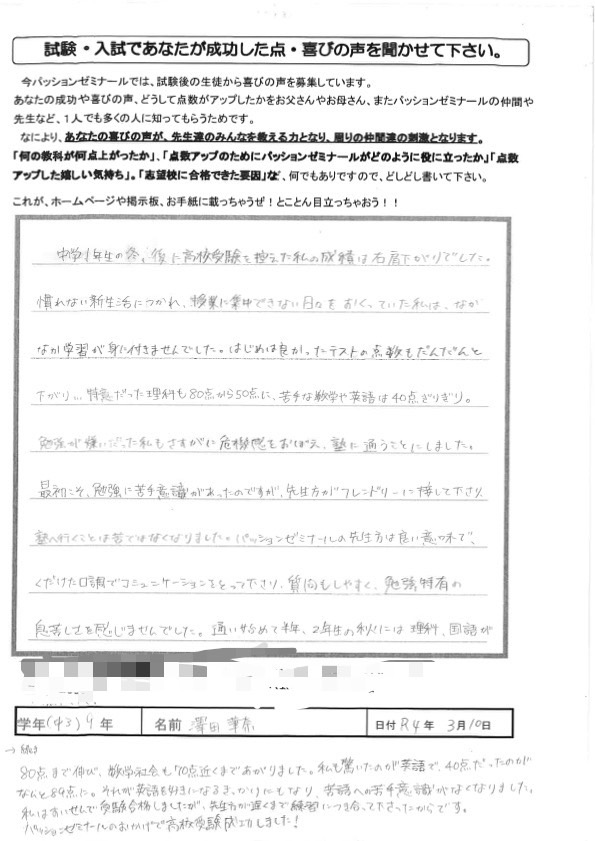 試験・入試であなたが成功した点・喜びの声を聞かせて下さい。
今パッションゼミナールでは、試験後の生徒から喜びの声を募集しています。
あなたの成功や喜びの声、どうして点数がアップしたかをお父さんやお母さん、またパッションゼミナールの仲間や
先生など、1人でも多くの人に知ってもらうためです。
なにより、あなたの喜びの声が、先生達のみんなを教える力となり、周りの仲間達の刺激となります。
「何の教科が何点上がったか」、「点数アップのためにパッションゼミナールがどのように役に立ったか」「点数
アップした嬉しい気持ち」。「志望校に合格できた要因」など、何でもありですので、どしどし書いて下さい。
これが、ホームページや掲示板、お手紙に載っちゃうぜ！とことん目立っちゃおう！！
中学1年生の冬、後に高校受験を控えた私の成績は右肩下がりでした。
慣れない新生活につかれ、授業に集中できない日々をおくっていた私は、なか
なか学習が身に付きませんでした。はじめは良かったテストの点数もだんだんと
下がり…特意だった理科も80点から50点に、苦手な数学や英語は40点ぎりぎり。
勉強が嫌いだった私もさすがに危機感をおぼえ、塾に通うことにしました。
最初こそ、勉強に苦手意識があったのですが、先生方がフレンドリーに接して下さり
塾へ行くことは苦ではなくなりました。パッションゼミナールの先生方は良い意味で、
くだけた口調でコミュニケーションをとって下さり、質問もしやすく、勉強特有の
息苦しさを感じませんでした。通い始めて半年、2年生の秋には理科、国語が
学年(中3) 年
名前 澤田
日付 R4年 3月10日
→続き
80点まで伸び、数学社会も70点近くまであがりました。私も驚いたのが英語で、40点だったのが
なんと89点に。それが英語を好きになるきっかけにもなり、英語への苦手意識がなくなりました。
私はすいせんで受験合格しましたが、先生方が遅くまで練習につき合って下さったからです。
パッションゼミナールのおかげで高校受験成功しました！